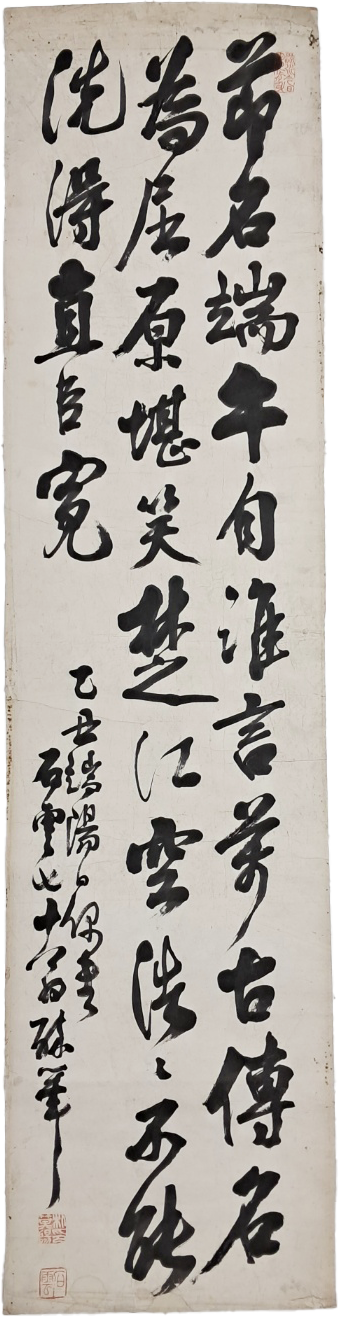 節名端午自誰言萬古傳名
為屈原堪笑楚江空浩〻不能
洗得直臣冤
乙丑端陽日偶書
石雲七十翁醉筆
石雲